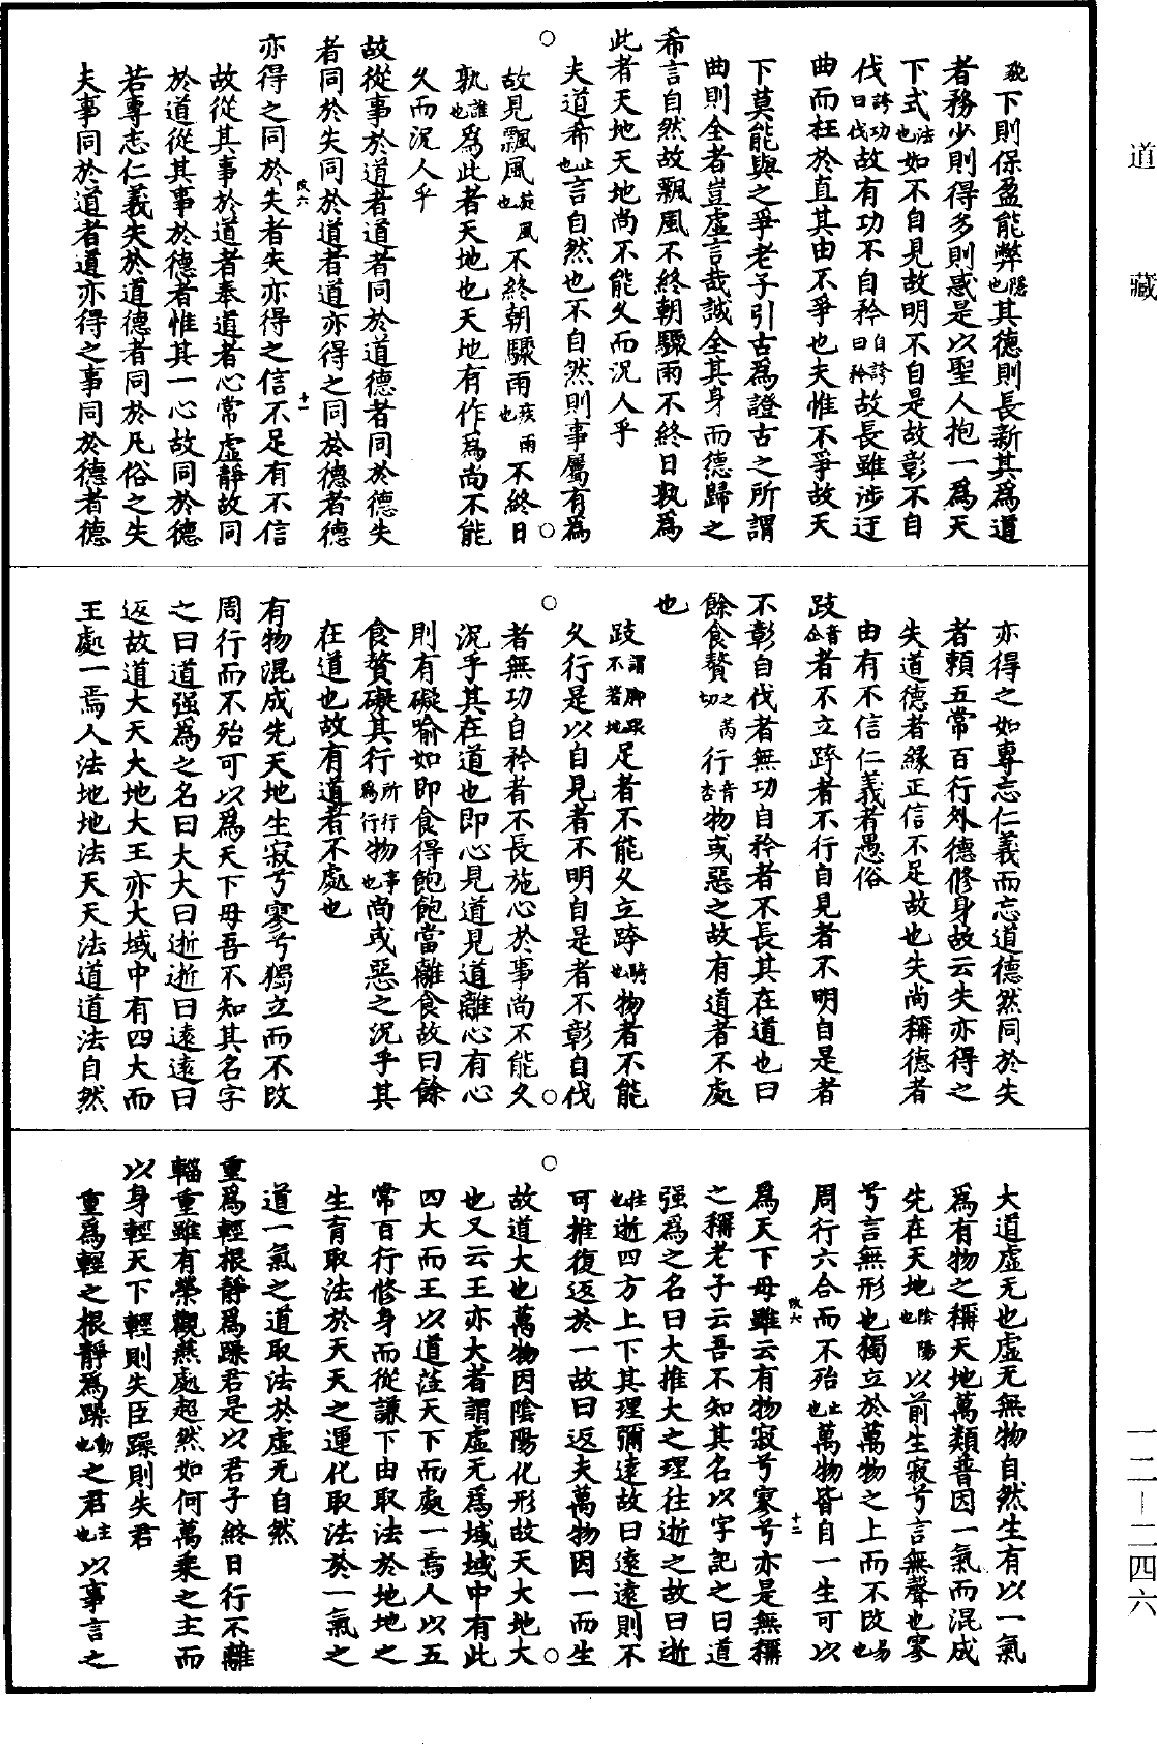 𣣔下則保盈能弊隱也其德則長新其爲道
者務少則得多則惑是以聖人抱一爲天
下式法也如不自見故明不自是故彰不自
伐誇功曰伐故有功不自矜自誇曰矜故長雖涉迂
曲而枉於直其由不爭也夫惟不爭故天
下莫能與之爭老子引古爲證古之所謂
曲則全者豈虛言哉誠全其身而德歸之
希言自然故飄風不終朝驟雨不終日孰爲
此者天地天地尚不能久而況人乎
夫道希止也言自然也不自然則事屬有爲
故見飄風旋風也不終朝驟雨疾雨也不終日
孰誰也爲此者天地也天地有作爲尚不能
久而況人乎
故從事於道者道者同於道德者同於德失
者同於失同於道者道亦得之同於德者德
亦得之同於失者失亦得之信不足有不信
故從其事於道者奉道者心常虛靜故同
於道從其事於德者惟其一心故同於德
若專志仁義失於道德者同於凡俗之失
夫事同於道者道亦得之事同於德者德
亦得之如專志仁義而忘道德然同於失
者賴五常百行外德修身故云失亦得之
失道德者緣正信不足故也失尚稱德者
由有不信仁義者愚俗
跂音企者不立跨者不行自見者不明自是者
不彰自伐者無功自矜者不長其在道也曰
餘食贅之芮切行音杏物或惡之故有道者不處
也
跂謂脚跟不著地足者不能久立跨騎也物者不能
久行是以自見者不明自是者不彰自伐
者無功自矜者不長施心於事尚不能久
況乎其在道也即心見道見道離心有心
則有礙喻如即食得飽飽當離食故曰餘
食贅礙其行所行爲行物事也尚或惡之況乎其
在道也故有道者不處也
有物混成先天地生寂兮寥兮獨立而不改
周行而不殆可以爲天下母吾不知其名字
之曰道强爲之名曰大大曰逝逝曰遠遠曰
返故道大天大地大王亦大域中有四大而
王處一焉人法地地法天天法道道法自然
大道虛无也虛无無物自然生有以一氣
爲有物之稱天地萬類普因一氣而混成
先在天地陰陽也以前生寂兮言無聲也寥
兮言無形也獨立於萬物之上而不改易也
周行六合而不殆止也萬物皆自一生可以
爲天下母雖云有物寂兮寥兮亦是無稱
之稱老子云吾不知其名以字記之曰道
强爲之名曰大推大之理往逝之故曰逝
往也逝四方上下其理彌遠故曰遠遠則不
可推復返於一故曰返夫萬物因一而生
故道大也萬物因陰陽化形故天大地大
也又云王亦大者謂虛无爲域域中有此
四大而王以道莅天下而處一焉人以五
常百行修身而從謙下由取法於地地之
生育取法於天天之運化取法於一氣之
道一氣之道取法於虛无自然
重爲輕根靜爲躁君是以君子終日行不離
輜重雖有榮觀燕處超然如何萬乘之主而
以身輕天下輕則失臣躁則失君
重爲輕之根靜爲躁動也之君主也以事言之
改六
十一
改六
十二
道藏
一二—二四六